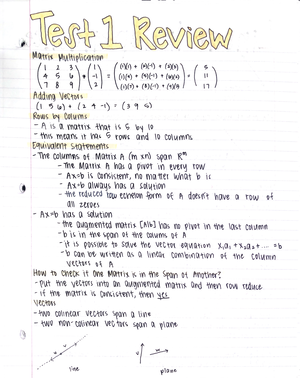 Test 1 Review
Matrix Multiplication
(1 2 3
4 5 6
7 8 9) (1
-1
2) = = (5
11
17)
Adding Vectors
(1 5 6) + (2 4 -1) = (3 9 5)
Rows by Colums
- A is a matrix that is 5 by 10
- this means it has 5 rows and 10 columns
Equivalent Statements
- The columns of Matrix A (m xn) span Rᵐ
- the Matrix A has a pivot in every row
- Ax=b is consistent, no matter what b is
- Ax=b always has a solution
- the reduced row echelon form of A doesn't have a row of
all zeroes
- Ax=b has a solution
- the augmented matrix [A|b] has no pivot in the last column
- b is in the span of the colums of A
- it is possible to solve the vector equation x₁a₁ + x₂a₂ + ... = b
- b can be written as a linear combination of the column
vectors of A
How to check if one Matrix is in the Span of Another?
- Put the vectors into an augmented matrix and then row reduce
- if the matrix is consistent, then yes
Vectors
- two colinear vectors span a line
- two non-colinear vectors span a plane
line
plane